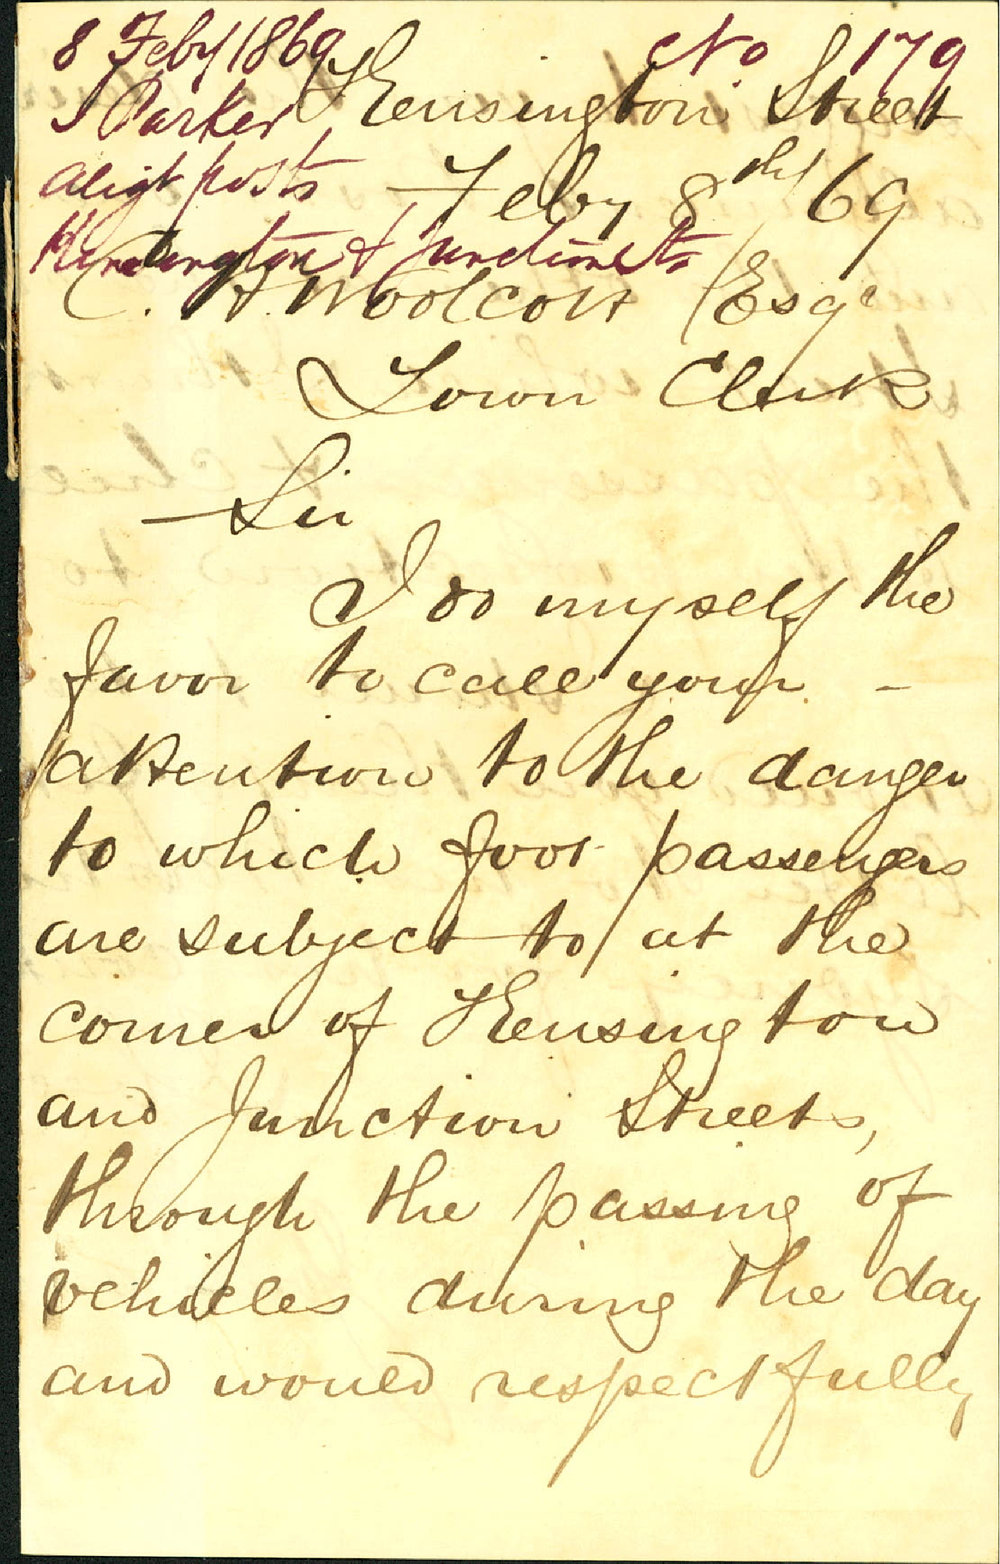 8 Feby 1869 No 179
J Parker
align posts
Kensington & Junction Sts
Kensington Street
Feby 8th/69
C. H. Woolcott Esqr
Town Clerk
Sir
I do myself the
favor to call your -
attention to the danger
to which foot passengers
are subject to at the
corner of Kensington
and Junction Streets,
through the passing of
vehicles during the day
and would respectfully